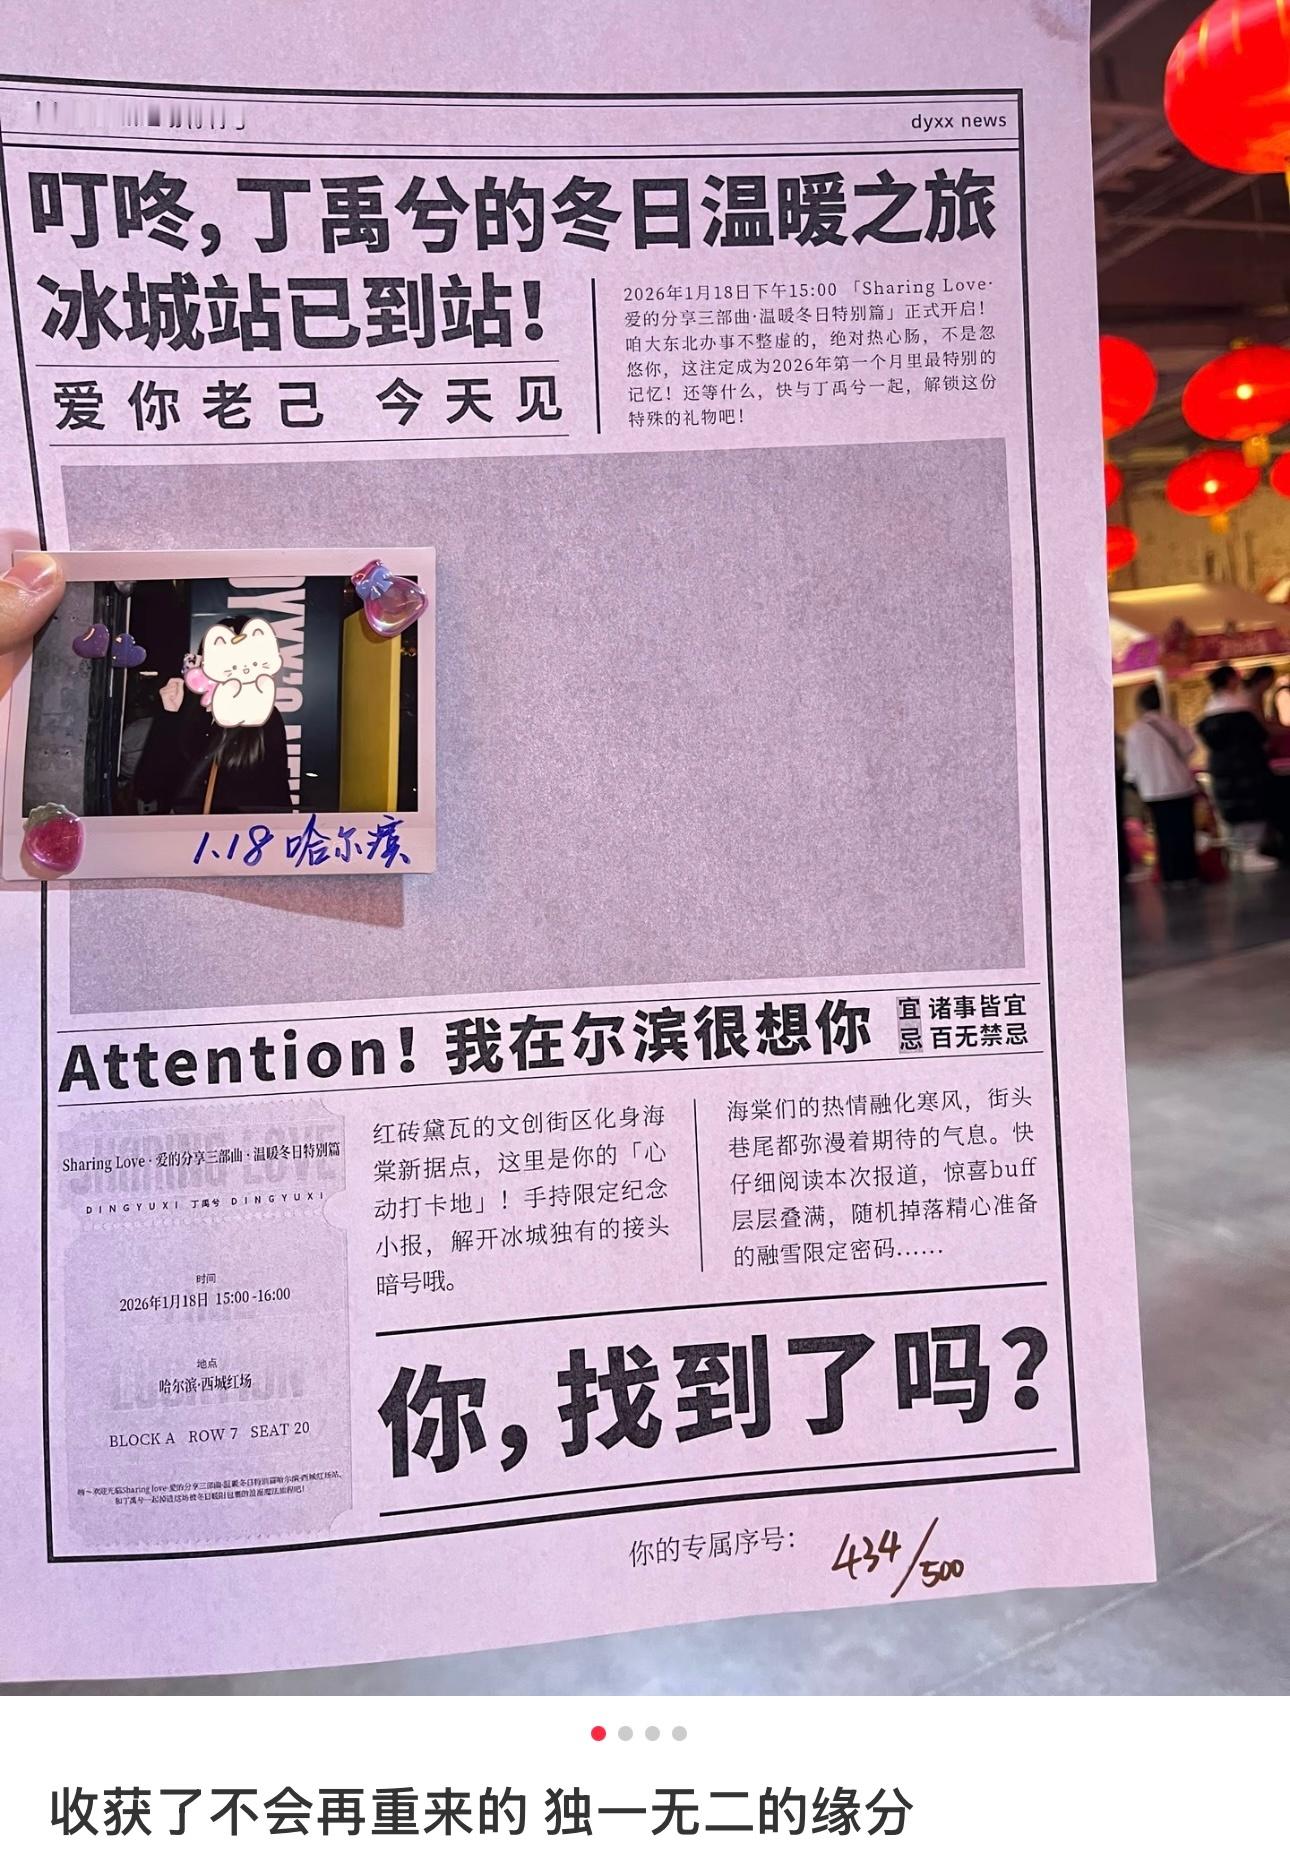 dyxx news
叮咚，丁禹兮的冬日温暖之旅
冰城站已到站！
爱你老己 今天见
2026年1月18日下午15:00 「Sharing Love·
爱的分享三部曲·温暖冬日特别篇」正式开启！
咱大东北办事不整虚的，绝对热心肠，不是忽
悠你，这注定成为2026年第一个月里最特别的
记忆！还等什么，快与丁禹兮一起，解锁这份
特殊的礼物吧！
1.18 哈尔滨
Attention！我在尔滨很想你
宜 诸事皆宜
忌 百无禁忌
SHARING LOVE
Sharing Love · 爱的分享三部曲 · 温暖冬日特别篇
DINGYUXI 丁禹兮 DINGYUXI
时间
2026年1月18日 15:00-16:00
地点
哈尔滨·西城红场
BLOCK A ROW 7 SEAT 20
红砖黛瓦的文创街区化身海
棠新据点，这里是你的「心
动打卡地」！手持限定纪念
小报，解开冰城独有的接头
暗号哦。
海棠们的热情融化寒风，街头
巷尾都弥漫着期待的气息。快
仔细阅读本次报道，惊喜buff
层层叠满，随机掉落精心准备
的融雪限定密码……
你，找到了吗？
你的专属序号：434/500
收获了不会再重来的 独一无二的缘分